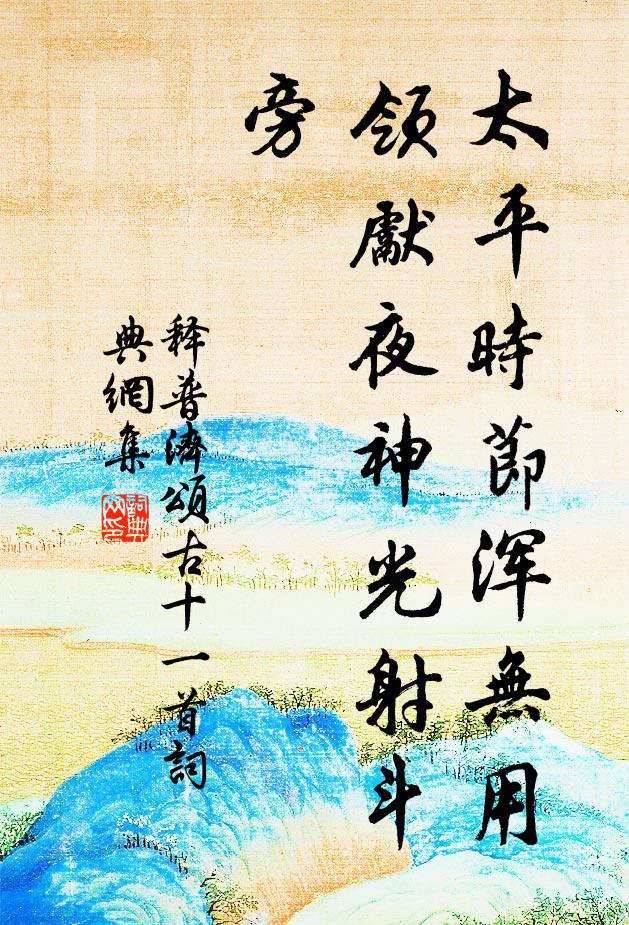 太平時節渾無用
領獻夜神光射斗
旁
释普濟頌古十一首詞
典網集
詞典網印